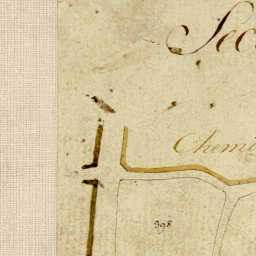 Sec
Chemi
398